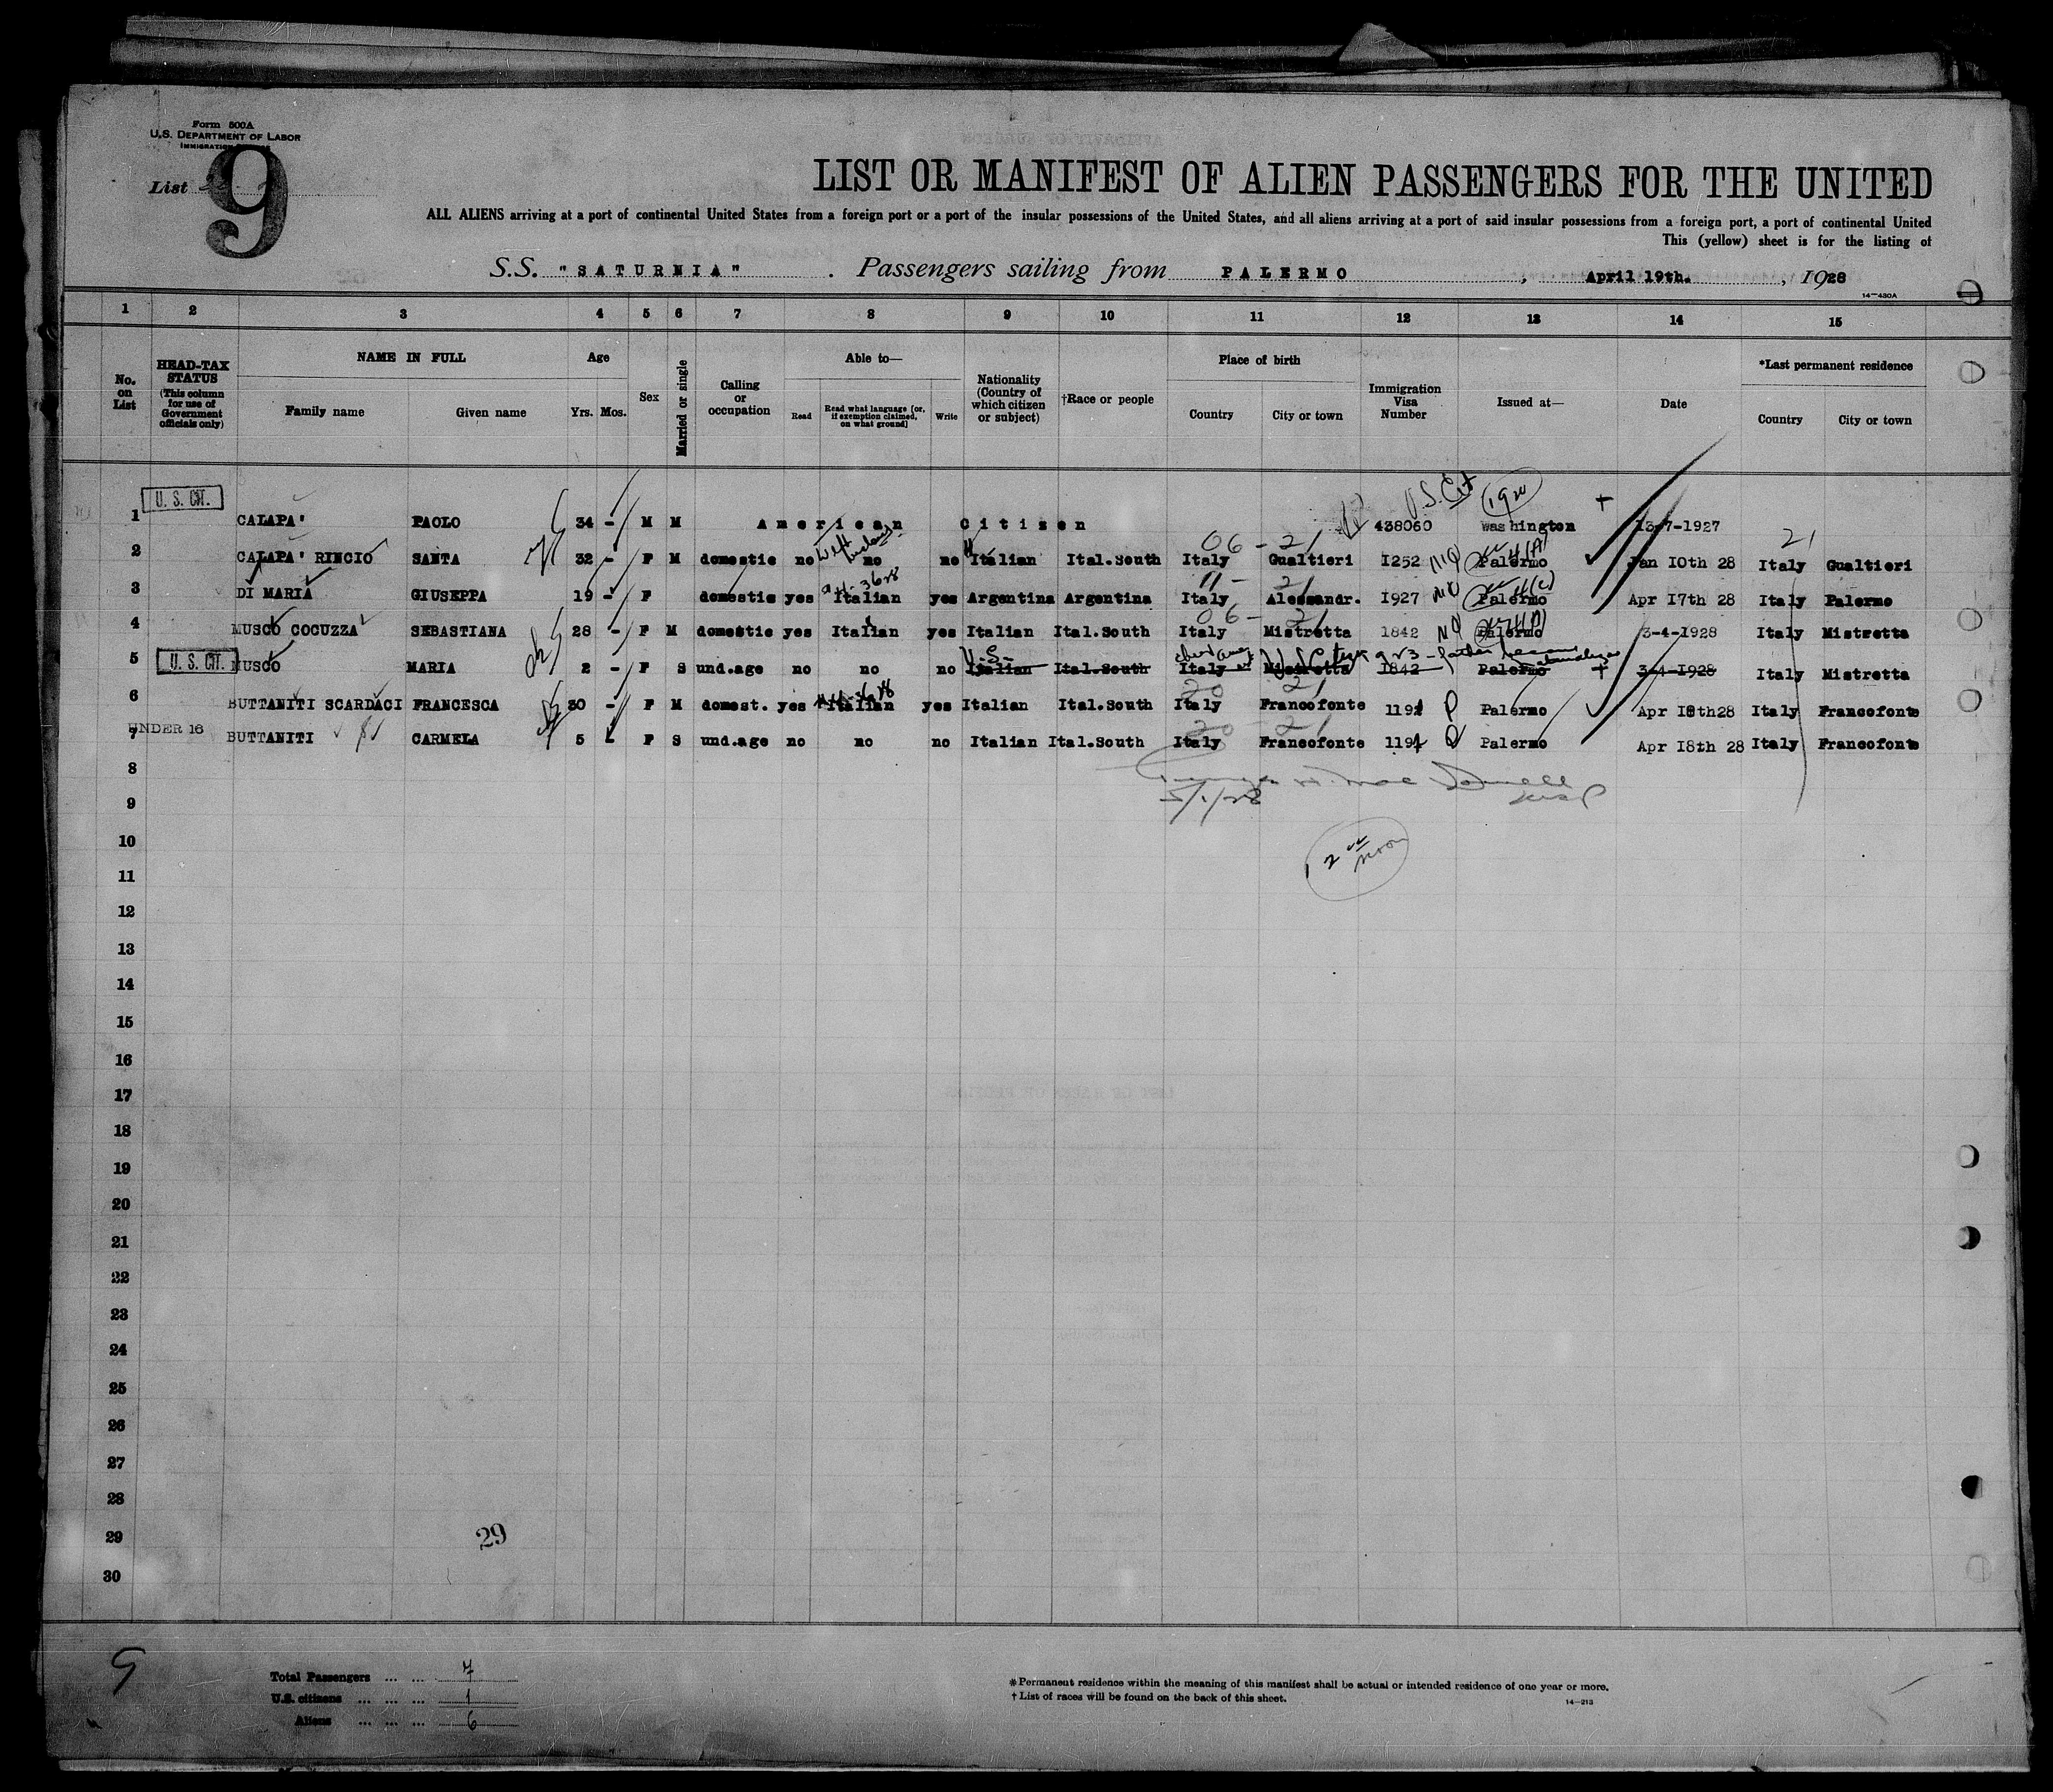 Form 500A
U.S. DEPARTMENT OF LABOR
IMMIGRATION
List
9
LIST OR MANIFEST OF ALIEN PASSENGERS FOR THE UNITED
ALL ALIENS arriving at a port of continental United States from a foreign port or a port of the insular possessions of the United States, and all aliens arriving at a port of said insular possessions from a foreign port, a port of continental United
This (yellow) sheet is for the listing of
S.S. "SATURNIA" . Passengers sailing from PALERMO , April 19th. , 1928
14-430A
1 2 3 4 5 6 7 8 9 10 11 12 13 14 15
No. on List
HEAD-TAX STATUS (This column for use of Government officials only)
NAME IN FULL
Family name Given name
Age
Yrs. Mos.
Sex
Married or single
Calling or occupation
Able to—
Read Read what language (or, if exemption claimed, on what ground) Write
Nationality (Country of which citizen or subject)
†Race or people
Place of birth
Country City or town
Immigration Visa Number
Issued at—
Date
*Last permanent residence
Country City or town
U. S. CIT. U.S. Cit
1 CALAPA' PAOLO 34 - M M American Citizen 438060 Washington 13-7-1927
06 - 21 21
2 CALAPA' RINCIO SANTA 32 - F M domestic no no no Italian Ital.South Italy Gualtieri I252 Palermo Jan 10th 28 Italy Gualtieri
3 DI MARIA GIUSEPPA 19 - F domestic yes Italian yes Argentina Argentina Italy Alessandr. I927 Palermo Apr 17th 28 Italy Palermo
06 - 21
4 MUSCO COCUZZA SEBASTIANA 28 - F M domestic yes Italian yes Italian Ital.South Italy Mistretta 1842 Palermo 3-4-1928 Italy Mistretta
U.S.
5 U. S. CIT. MUSCO MARIA 2 - F S und.age no no no Italian Ital.South Italy Mistretta 1842 Palermo 3-4-1928 Italy Mistretta
20 21
6 BUTTANITI SCARDACI FRANCESCA 30 - F M domest. yes Italian yes Italian Ital.South Italy Francofonte Palermo Apr 18th28 Italy Francofonte
UNDER 16
20 21
7 BUTTANITI CARMELA 5 F S und.age no no no Italian Ital.South Italy Francofonte Palermo Apr 18th 28 Italy Francofonte
8
5/1/28
9
10
12 noon
11
12
13
14
15
16
17
18
19
20
21
22
23
24
25
26
27
28
29
29
30
9
Total Passengers ... ... 7
U.S. citizens ... ... ... 1
Aliens ... ... ... 6
*Permanent residence within the meaning of this manifest shall be actual or intended residence of one year or more.
†List of races will be found on the back of this sheet.
14-213